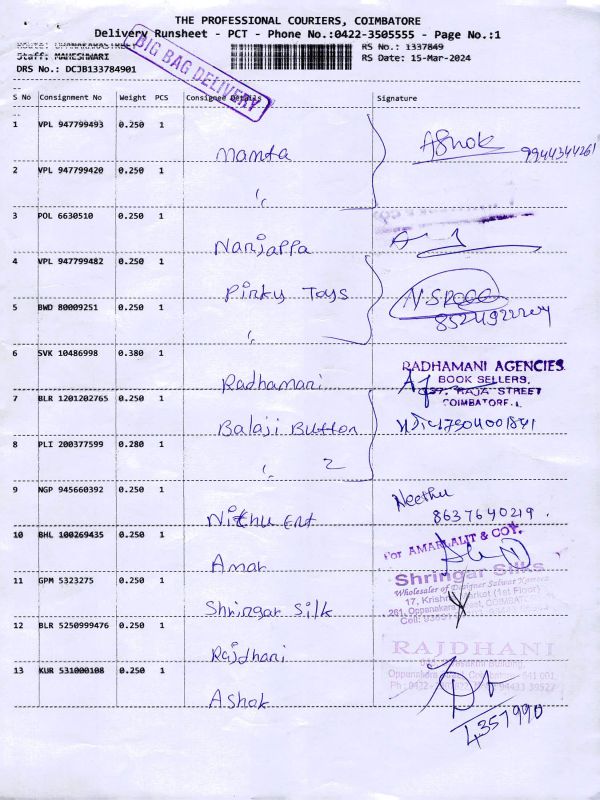 THE PROFESSIONAL COURIERS, COIMBATORE
Delivery Runsheet - PCT - Phone No.:0422-3505555 - Page No.:1
BIG BAG DELIVERY
RS No.: 1337849
Staff: MAHESHWARI
RS Date: 15-Mar-2024
DRS No.: DCJB133784901
S No Consignment No Weight PCS Consignee Details Signature
1 VPL 947799493 0.250 1
Namta Ashok 9944344261
2 VPL 947799420 0.250 1
"
3 POL 6630510 0.250 1
Nanjappa
4 VPL 947799482 0.250 1
Pinky Toys
5 BWD 80009251 0.250 1
"
6 SVK 10486998 0.380 1
Radhamani
RADHAMANI AGENCIES
BOOK SELLERS,
RAJA STREET
COIMBATORE.1
7 BLR 1201202765 0.250 1
Balaji Button
8 PLI 200377599 0.280 1
" 2
9 NGP 945660392 0.250 1
Nithu Ent Neethu
8637640219.
10 BHL 100269435 0.250 1
Amar
For AMAR LALIT & COY.
11 GPM 5323275 0.250 1
Shringar Silk
Shringar Silks
Wholesaler of Designer Salwar Kameez
17, Krishna Market (1st Floor)
261, Oppanakara Street, COIMBATORE
Cell:
12 BLR 5250999476 0.250 1
Rajdhani
RAJDHANI
Building,
Oppanakara Street, Coimbatore - 641 001.
94433 39527
13 KUR 531000108 0.250 1
Ashok
4357990